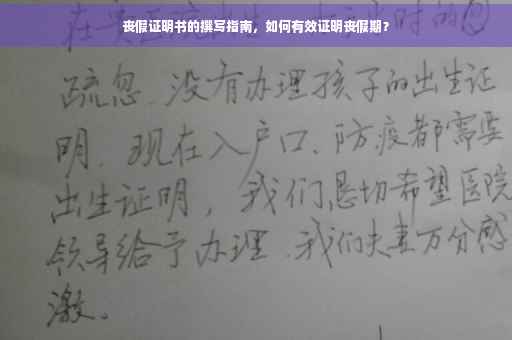 丧假证明书的撰写指南，如何有效证明丧假期？
疏忽，没有办理孩子的出生证
明，现在入户口、防疫都需要
出生证明，我们恳切希望医院
领导给予办理，我们夫妻万分感
激。